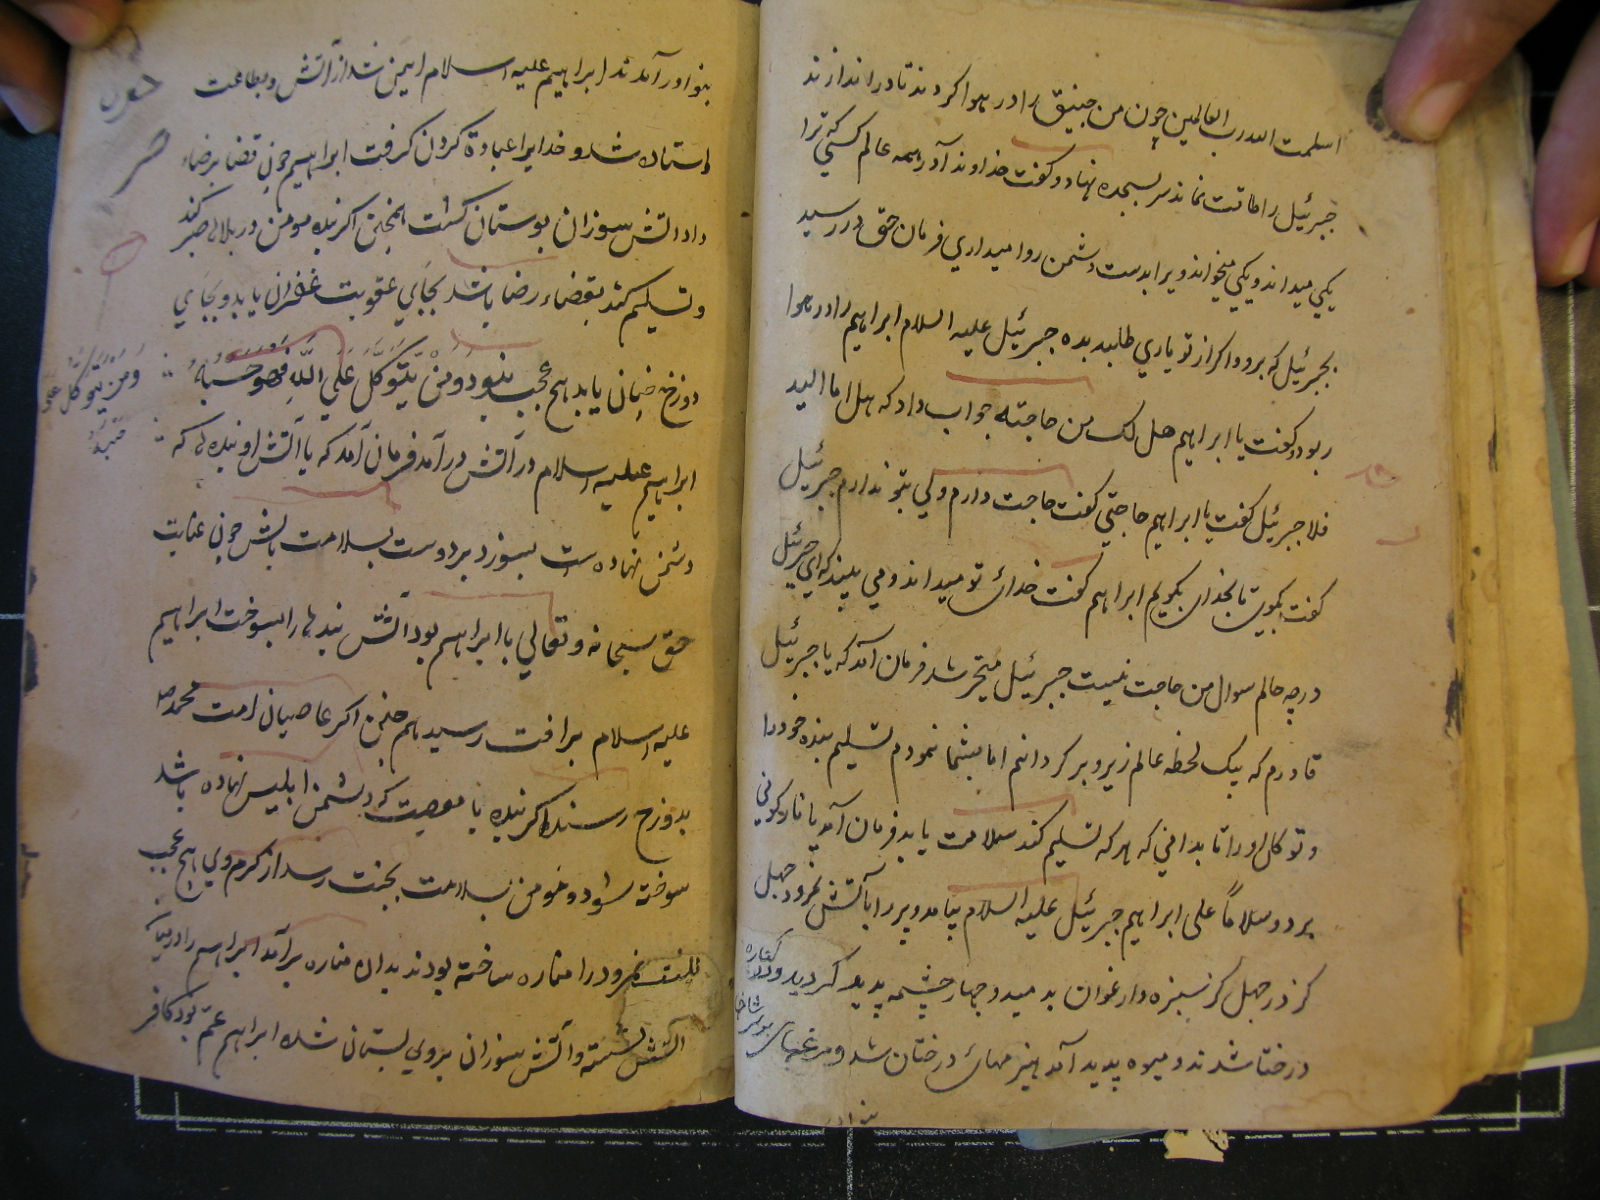 اسلمت لله رب العالمین چون من جنیق را در هوا کردند تا در اندازند
جبرئیل را طاقت نماند سر بسجده نهاد و گفت خداوندا در همه عالم کسی که ترا
یکی میداند و یکی میخواند ویرا بدست دشمن روا میداری فرمان حق در رسید
بجبرئیل که برو و اگر از تو یاری طلبد بده جبرئیل علیه السلام ابراهیم را در هوا
ربود و گفت یا ابراهیم هل لک من حاجته جواب داد که هل اما الید
فلا جبرئیل گفت یا ابراهیم حاجتی گفت حاجت دارم ولی بتو ندارم جبرئیل
گفت بگوی تا بخدای بگویم ابراهیم گفت خدای تو میداند و می بیند که ای جبرئیل
در چه حالم سوال من حاجت نیست جبرئیل متحیر شد فرمان آمد که یا جبرئیل
قادرم که بیک لحظه عالم زیر و بر گردانم اما بشما نمودم تسلیم بنده خود را
و توکل او را تا بدانی که هر که تسلیم کند سلامت یابد فرمان آمد یا نار کونی
بردا و سلاماً علی ابراهیم جبرئیل علیه السلام بیامد و پر را بآتش نمرود چهل
گز در چهل گز سبزه و ارغوان بدمید و چهار چشمه پدید گردید و در کناره
درختا شدند و میوه پدید آمد هیزمهای درختان شد و مرغهای
بنوا در آمدند ابراهیم علیه السلام ایمن شد از آتش و بطاعت
استاده شد و خدایرا عبادة کردن گرفت ابراهیم چون قضا برضاء
داد آتش سوزان بوستان گشت همچنین اگر بنده مومن در بلا صبر کند
و تسلیم کند بقضاء رضا باشد بجای عقوبت غفران یابد و بجای
دوزخ جنان یابد هیچ عجب نبود وَمَنْ یَتَوَکَّلْ عَلَی اللَّهِ فَهُوَ حَسْبُهُ
ابراهیم علیه السلام در آتش در آمد فرمان آمد که یا آتش او بنده که
دشمن نهاده است بسوزد بر دوست بسلامت باش چون عنایت
حق سبحانه و تعالی با ابراهیم بود آتش بندها را بسوخت ابراهیم
علیه السلام برافت رسید هم چنین اگر عاصیان امت محمد ص
بدوزخ رسند اگر بنده با معصیت که دشمن ابلیس نهاده باشد
سوخته شود و مومن بسلامت بجنت رسد از کرم وی هیچ عجب
نمرود را مناره ساخته بودند بدان مناره بر آمد ابراهیم را در میان
آتش نشسته و آتش سوزان بروی بستان شده ابراهیم عم بود کافر
وَمَنْ یَتَوَکَّلْ علی